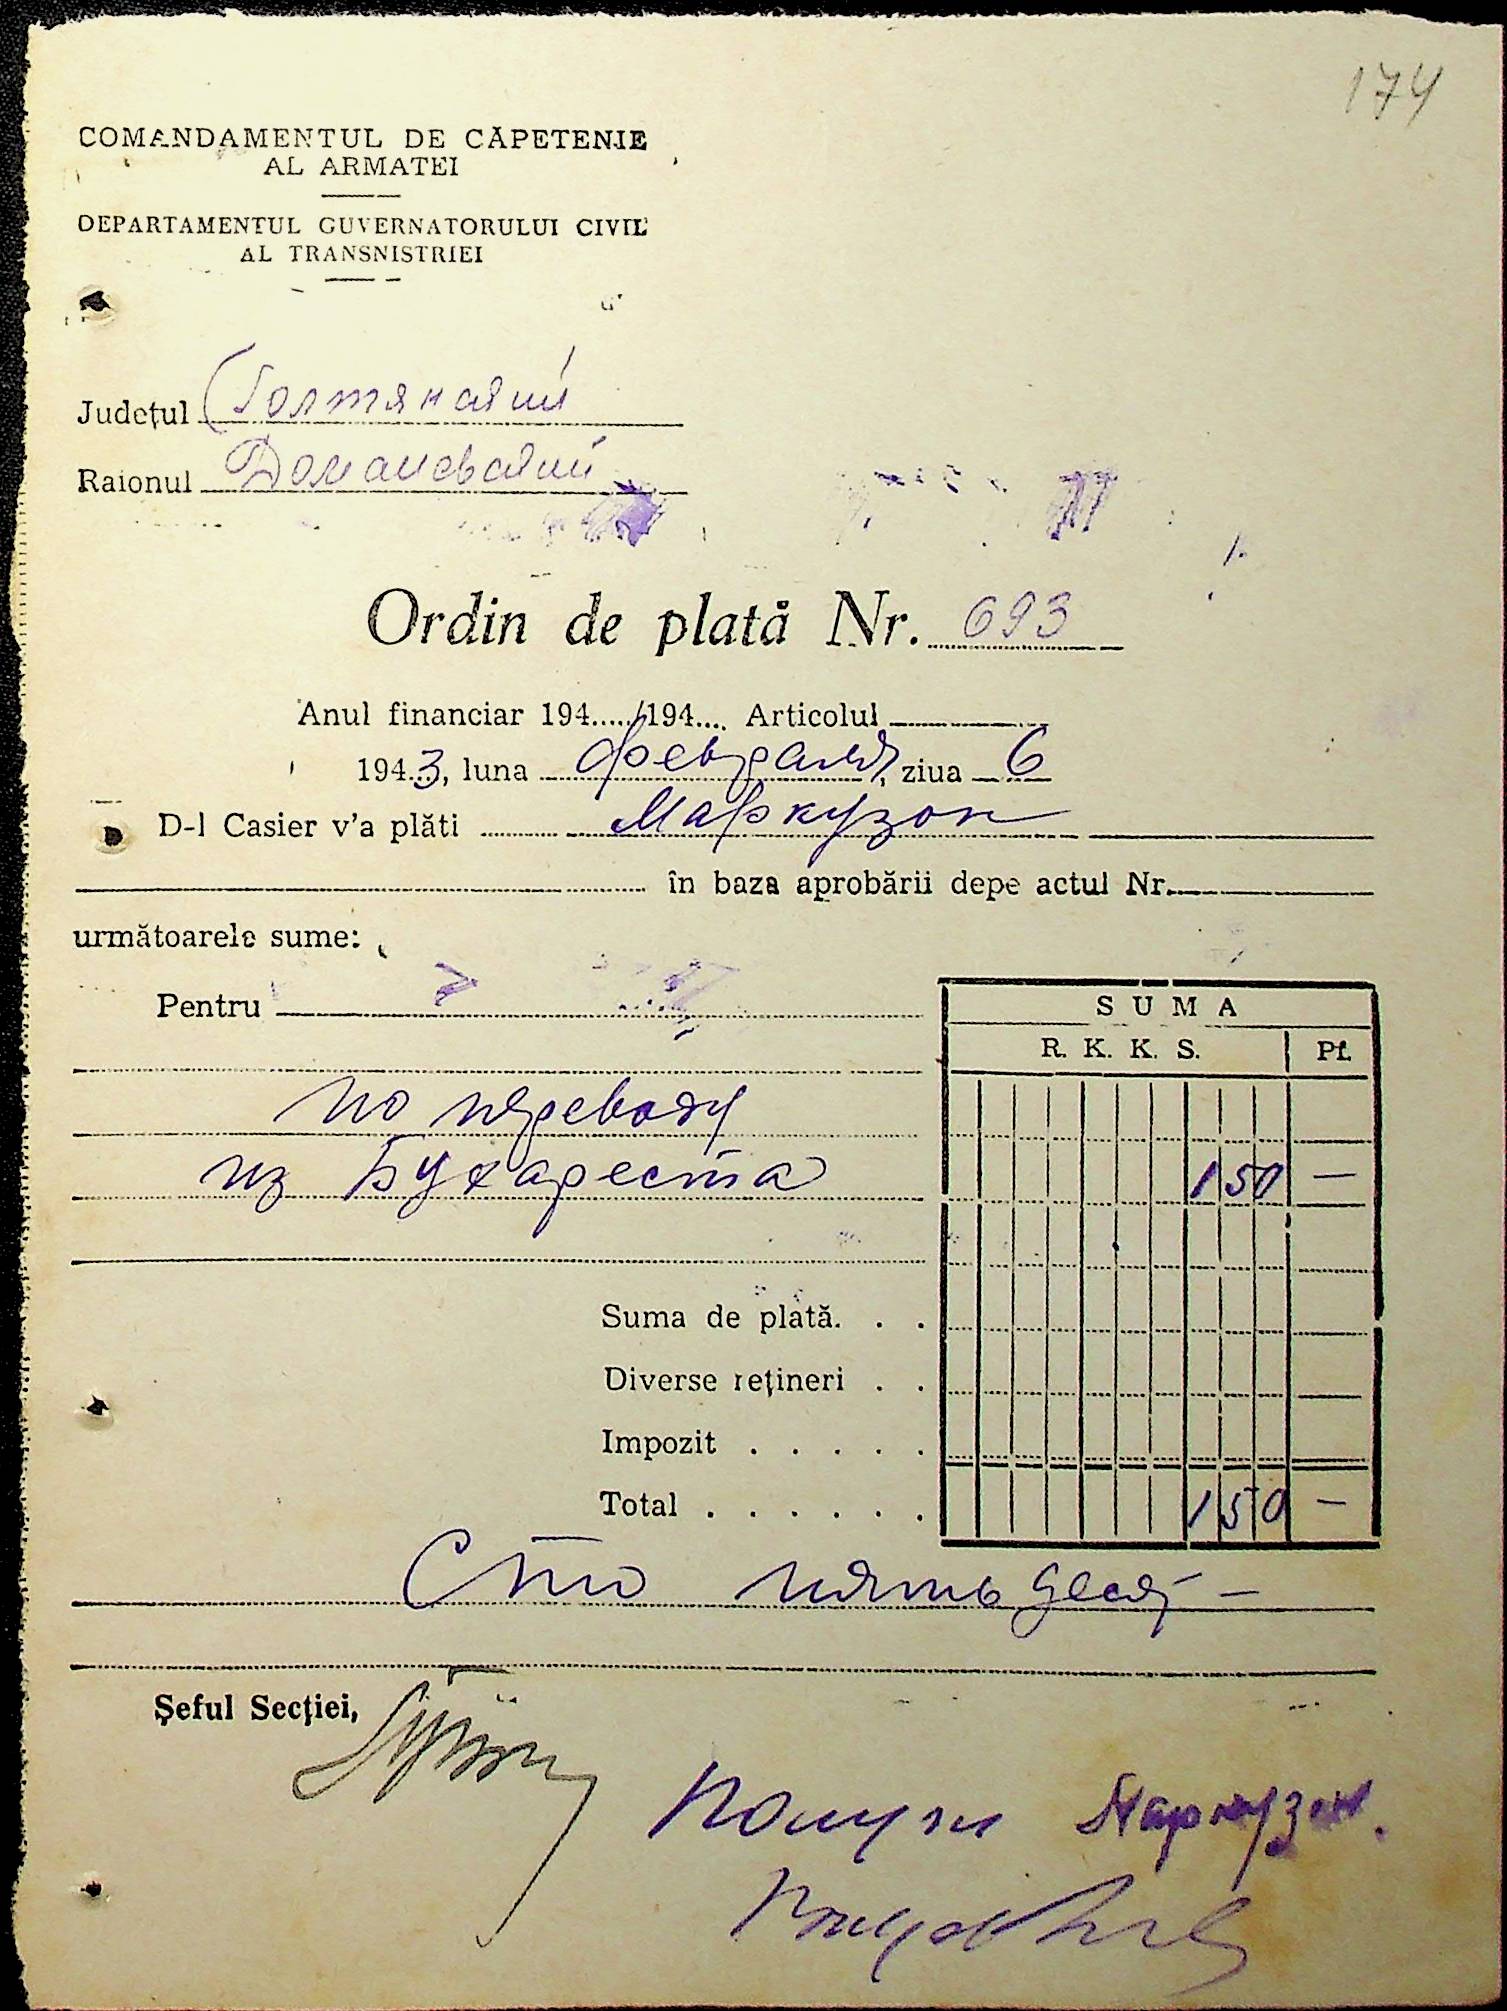 174
COMANDAMENTUL DE CĂPETENIE
AL ARMATEI
DEPARTAMENTUL GUVERNATORULUI CIVIL
AL TRANSNISTRIEI
Județul Голтянский
Raionul Доманевский
Ordin de plată Nr. 693
Anul financiar 194...../194.... Articolul
194 3, luna февраля, ziua 6
D-l Casier v'a plăti Маркузон
în baza aprobării depe actul Nr.
următoarele sume:
Pentru
SUMA
R. K. K. S. Pf.
по переводу
из Бухареста 150 —
Suma de plată. . .
Diverse rețineri . .
Impozit . . . . .
Total . . . . . . 150 —
Сто пятьдесят —
Șeful Secției,
Маркузон.